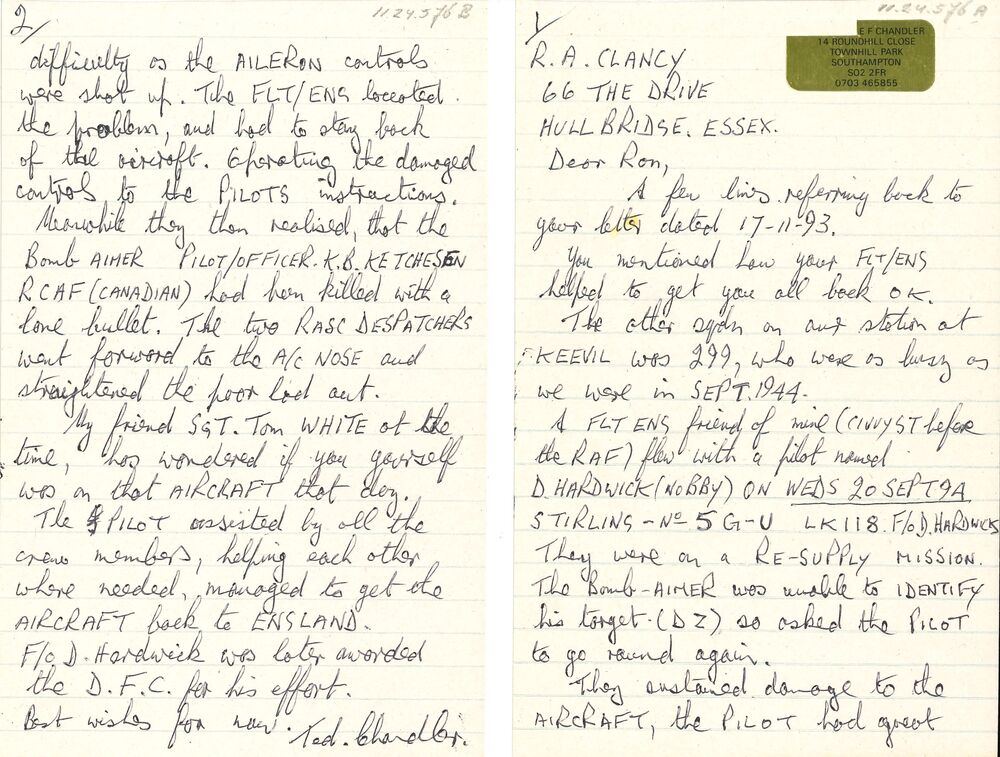 1/
11.24.576 A
E F CHANDLER
14 ROUNDHILL CLOSE
TOWNHILL PARK
SOUTHAMPTON
SO2 2FR
0703 465855
R. A. CLANCY
66 THE DRIVE
HULLBRIDGE. ESSEX.
Dear Ron,
A few lines referring back to
your letter dated 17-11-93.
You mentioned how your FLT/ENG
helped to get you all back OK.
The other sqdn on our station at
KEEVIL was 299, who were as busy as
we were in SEPT. 1944.
A FLT ENG friend of mine (CIVVY ST before
the RAF) flew with a pilot named
D. HARDWICK (NOBBY) ON WEDS 20 SEPT 94
STIRLING - No 5 G-U LK118. F/O D. HARDWICK
They were on a RE-SUPPLY MISSION.
The Bomb-AIMER was unable to IDENTIFY
his target. (DZ) so asked the PILOT
to go round again.
They sustained damage to the
AIRCRAFT, the PILOT had great
2/
11.24.576 B
difficulty as the AILERON controls
were shot up. The FLT/ENG located
the problem, and had to stay back
of the aircraft. Operating the damaged
controls to the PILOTS instructions.
Meanwhile they then realised, that the
Bomb AIMER PILOT/OFFICER. K.B. KETCHESEN
RCAF (CANADIAN) had been killed with a
lone bullet. The two RASC DESPATCHERS
went forward to the A/C NOSE and
straightened the poor lad out.
My friend SGT. Tom WHITE at the
time, has wondered if you yourself
was on that AIRCRAFT that day.
The PILOT assisted by all the
crew members, helping each other
where needed, managed to get the
AIRCRAFT back to ENGLAND.
F/O D. Hardwick was later awarded
the D.F.C. for his effort.
Best wishes for now. Ted. Chandler.